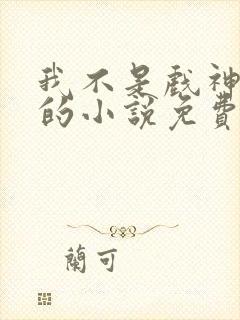 我不是戲神
的小説免費
蘭可